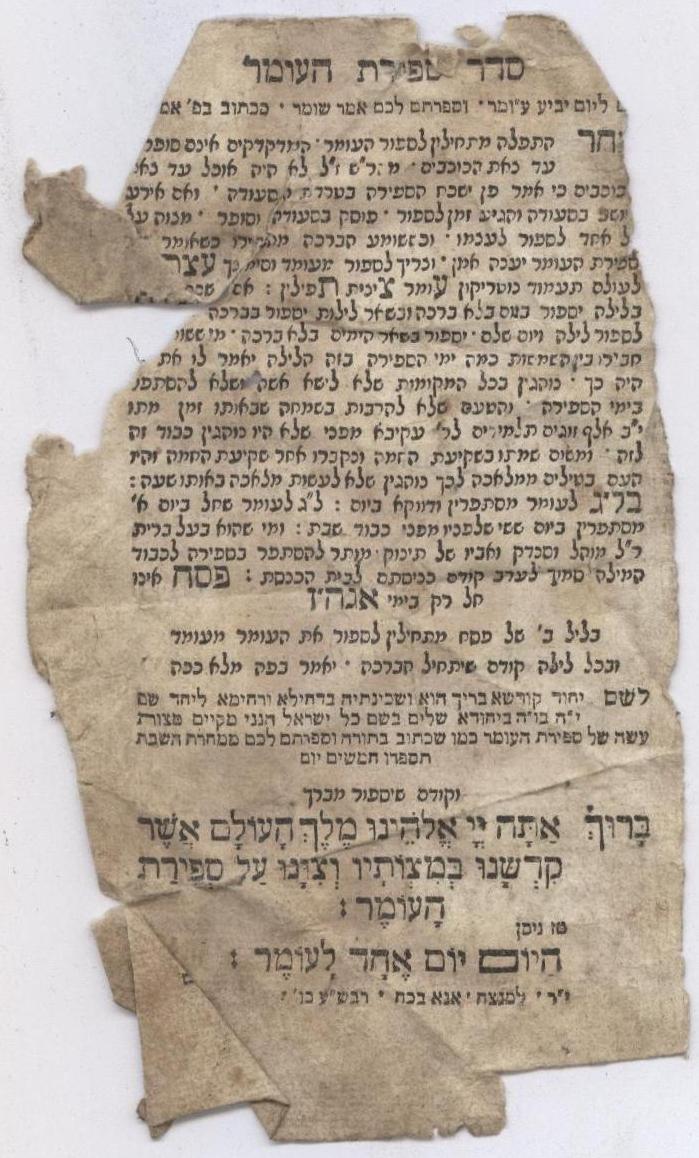 סדר ספירת העומר
ליום יביע עומר • וספרתם לכם אמר שומר • ככתוב בפ׳ אמ
התפלה מתחילין לספור העומר • המדקדקים אינם סופר
עד צאת הכוכבים • מהר״ש ז״ל לא היה אוכל עד צא
כוכבים כי אמר פן ישכח הספירה בטרדת הסעודה • ואם אירע
יושב בסעודה והגיע זמן לספור • פוסק בסעודה וסופר • מצוה על
ל אחד לספור לעצמו • וכששומע הברכה כשאומר
ספירת העומר יענה אמן • וצריך לספור מעומד וסימנך עצר
לעולם תעמוד נוטריקון עומר ציצית תפילין : אם שכח
בלילה יספור ביום בלא ברכה ובשאר לילות יספור בברכה
לספור לילה ויום שלם • יספור בשאר הימים בלא ברכה • מי ששו
חבירו בין השמשות כמה ימי הספירה בזה הלילה יאמר לו את
היה כך • נוהגין בכל המקומות שלא לישא אשה ושלא להסתפר
בימי הספירה • והטעם שלא להרבות בשמחה שבאותו זמן מתו
י״ב אלף זוגים תלמידים לר׳ עקיבא מפני שלא היו נוהגין כבוד זה
לזה • ומשום שמתו בשקיעת החמה ונקברו אחר שקיעת החמה והיו
העם בטילים ממלאכה לכך נוהגין שלא לעשות מלאכה באותו שעה :
בל״ג לעומר מסתפרין ודווקא ביום : ל״ג לעומר שחל ביום א׳
מסתפרין ביום ששי שלפניו מפני כבוד שבת : ומי שהוא בעל ברית
ר״ל מוהל וסנדק ואביו של תינוק מותר להסתפר בספירה לכבוד
המילה סמוך לערב קודם כניסתם לבית הכנסת : פסח אינו
חל רק בימי אגה״ז
בליל ב׳ של פסח מתחילין לספור את העומר מעומד
ובכל לילה קודם שיתחיל הברכה • יאמר בפה מלא ככה
לשם יחוד קודשא בריך הוא ושכינתיה בדחילא ורחימא ליחד שם
י״ה בו״ה ביחודא שלים בשם כל ישראל הנני מקיים מצות
עשה של ספירת העומר כמו שכתוב בתורה וספרתם לכם ממחרת השבת
תספרו חמשים יום
וקודם שיספור מברך
בָּרוּךְ אַתָּה יְיָ אֱלֹהֵינוּ מֶלֶךְ הָעוֹלָם אֲשֶׁר
קִדְשָׁנוּ בְּמִצְוֹתָיו וְצִוָּנוּ עַל סְפִירַת
הָעוֹמֶר :
טז ניסן
הַיּוֹם יוֹם אֶחָד לָעוֹמֶר :
למנצח • אנא בכח • רבש״ע כו׳ :